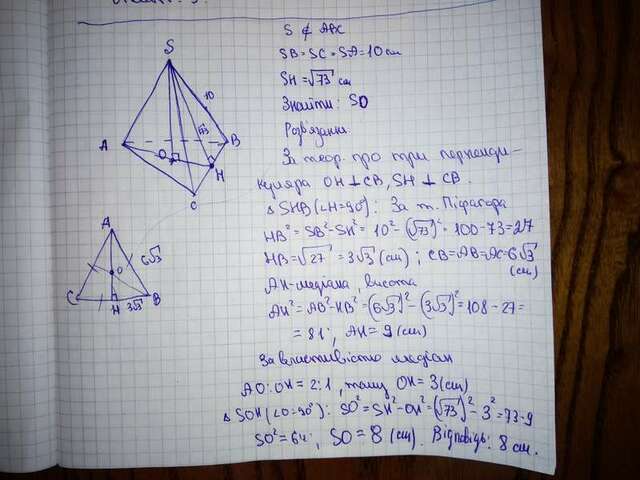 S ∉ ABC
SB=SC=SA=10 см
SH=√73 см
Знайти: SO
Розв'язання
За теор. про три перпенди-
куляра OH⊥CB, SH⊥CB.
△SHB (∠H=90°): За т. Піфагора
HB²=SB²-SH²=10²-(√73)²=100-73=27
HB=√27=3√3 (см); CB=AB=AC=6√3 (см)
AH-медіана, висота
AH²=AB²-HB²=(6√3)²-(3√3)²=108-27=
=81, AH=9 (см)
За властивістю медіан
AO:OH=2:1, тому OH=3 (см)
△SOH (∠O=90°): SO²=SH²-OH²=(√73)²-3²=73-9
SO²=64; SO=8 (см). Відповідь: 8 см.
S
A
O
C
H
B
√73
10
C
H
3√3
B
O
A
6√3